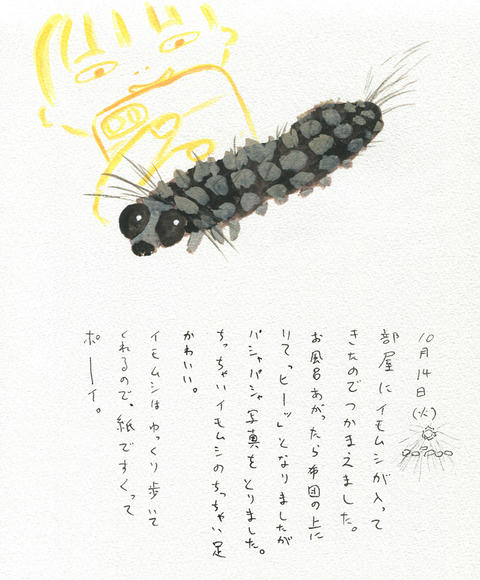 10月14日(火)
部屋にイモムシが入って
きたのでつかまえました。
お風呂あがったら布団の上に
いて「ヒーッ」となりましたが
パシャパシャ写真をとりました。
ちっちゃいイモムシのちっちゃい足
かわいい。
イモムシはゆっくり歩いて
くれるので、紙ですくって
ポーイ。